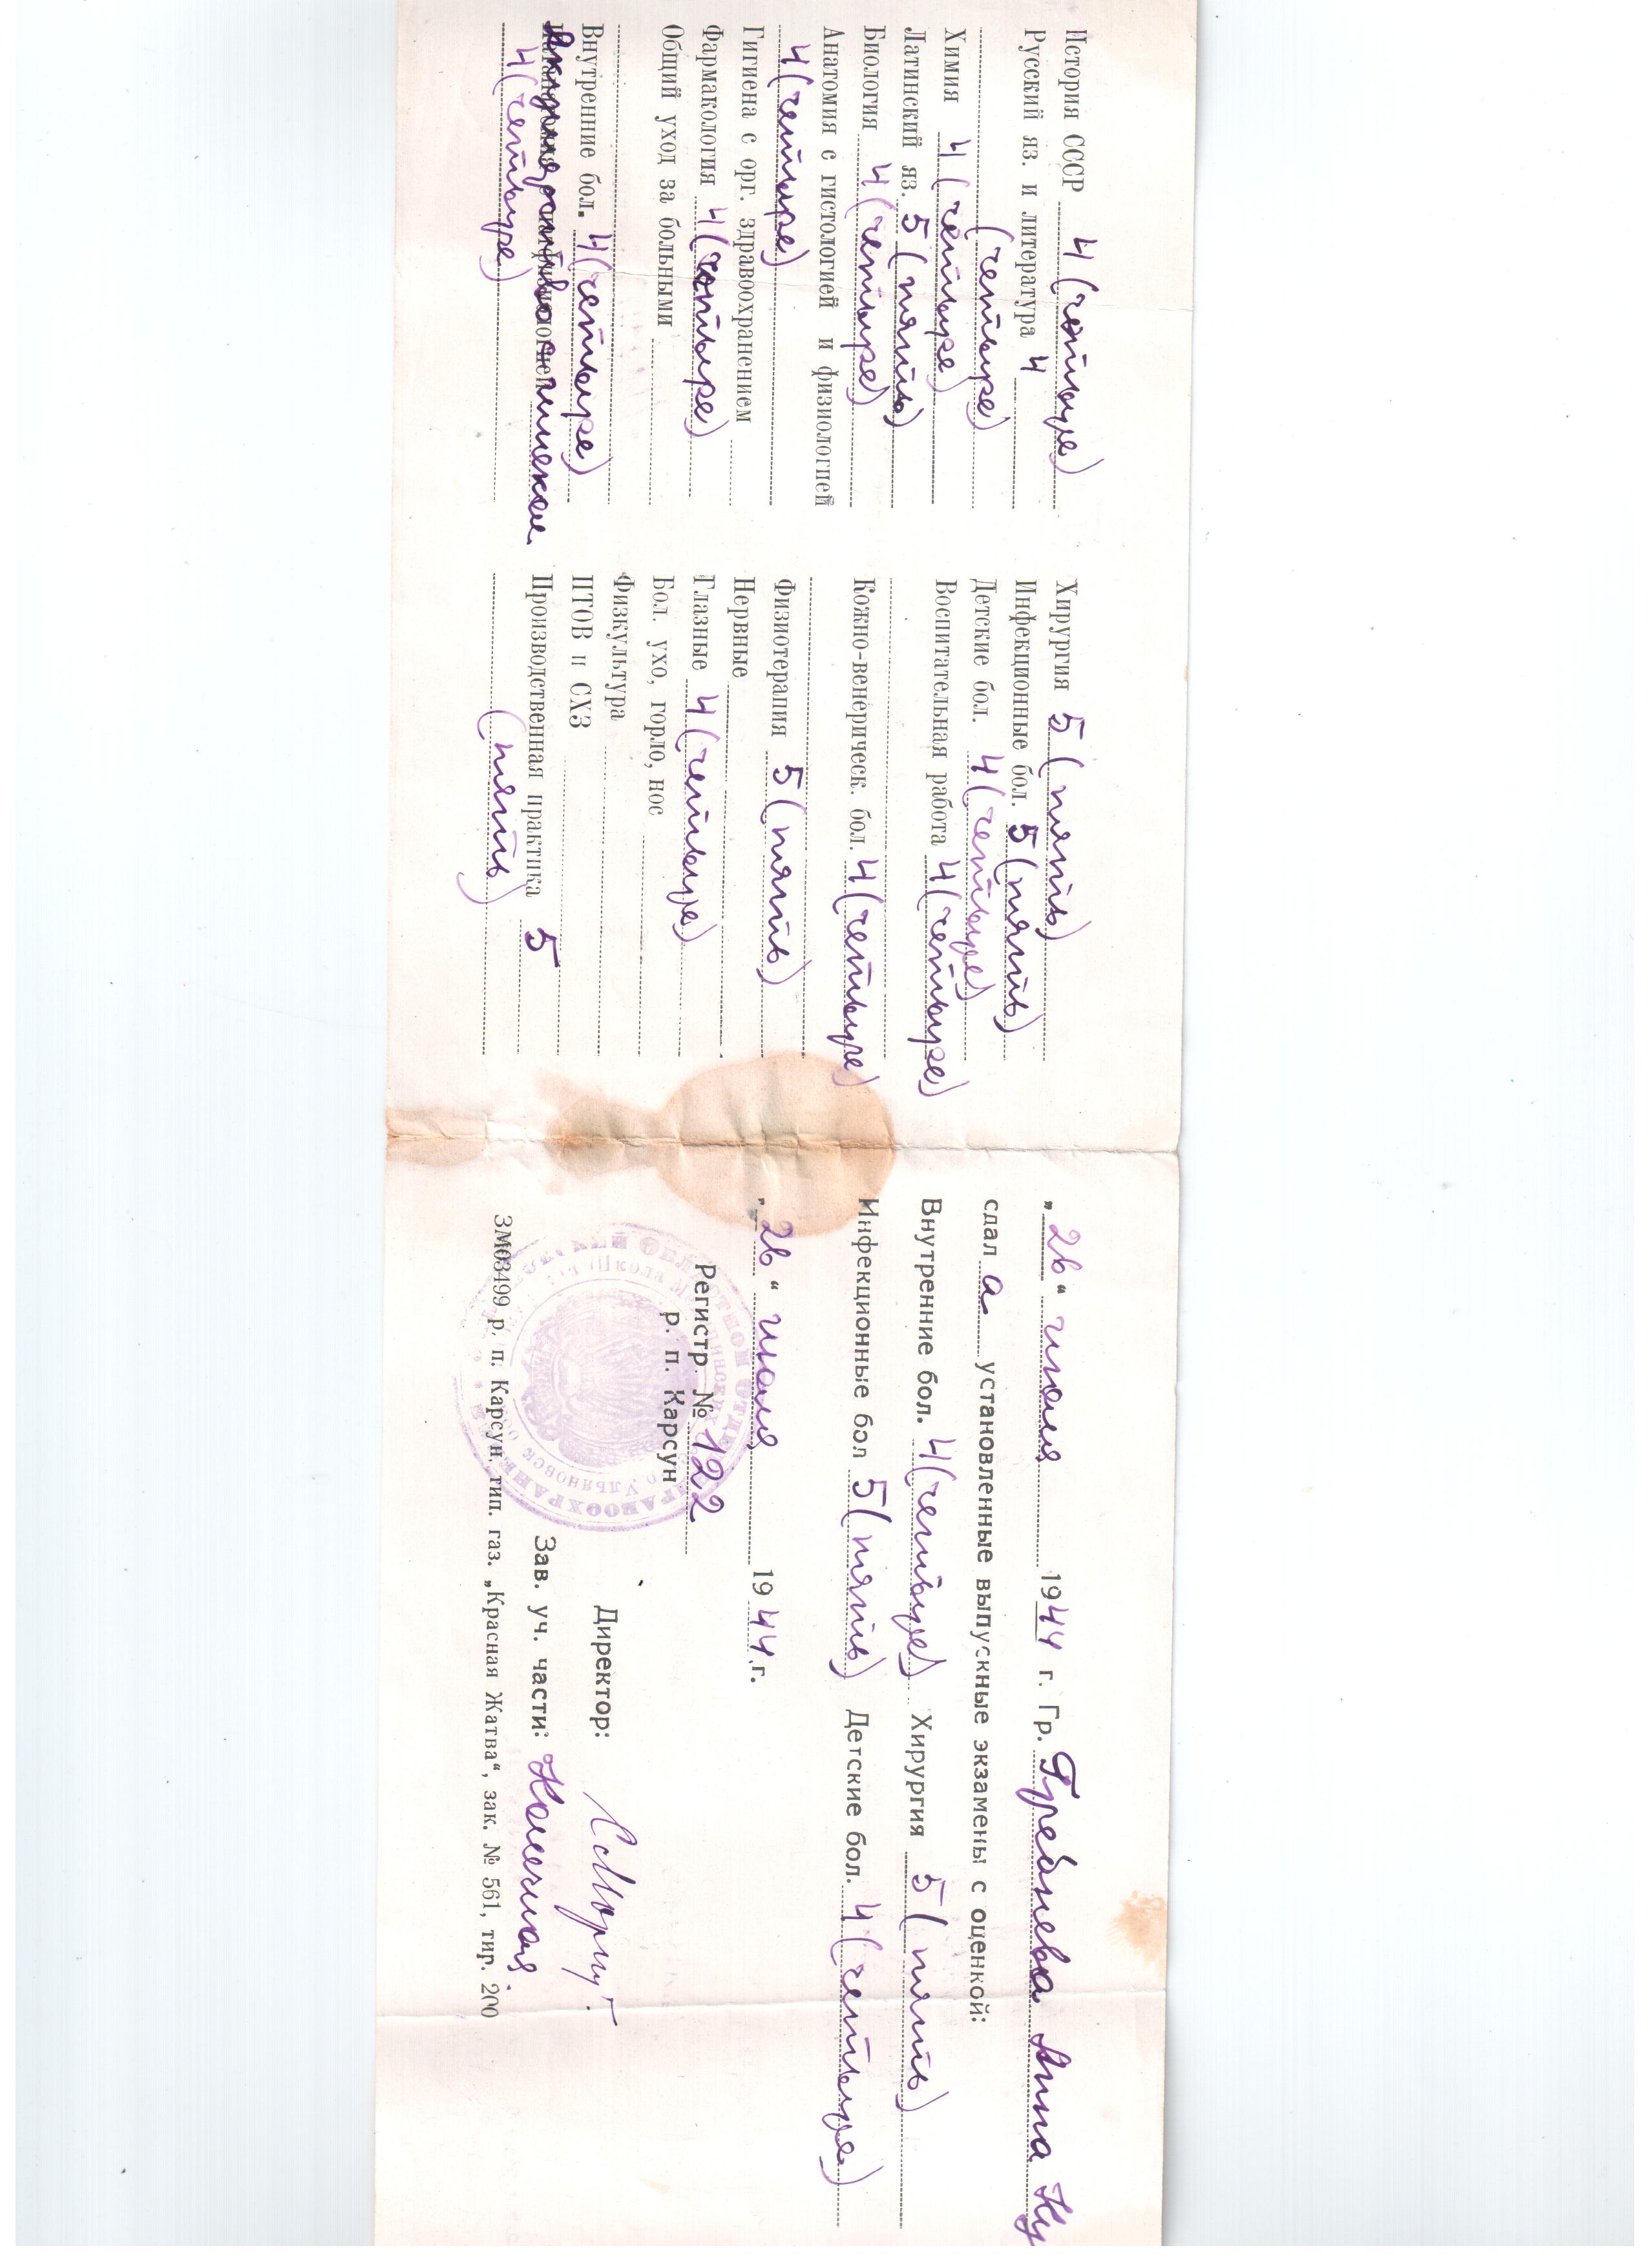 История СССР 4 (четыре)
Русский яз. и литература 4
(четыре)
Химия 4 (четыре)
Латинский яз. 5 (пять)
Биология 4 (четыре)
Анатомия с гистологией и физиологией
4 (четыре)
Гигиена с орг. здравоохранением
Фармакология 4 (четыре)
Общий уход за больными
Внутренние бол. 4 (четыре)
Акушерство с гинекол.
4 (четыре)
Хирургия 5 (пять)
Инфекционные бол. 5 (пять)
Детские бол. 4 (четыре)
Воспитательная работа 4 (четыре)
Кожно-венерическ. бол. 4 (четыре)
Физиотерапия 5 (пять)
Нервные
Глазные 4 (четыре)
Бол. ухо, горло, нос
Физкультура
ПТОВ и СХЗ
Производственная практика 5
(пять)
„26“ июля 1944 г. Гр. Анна
сдал а установленные выпускные экзамены с оценкой:
Внутренние бол. 4 (четыре) Хирургия 5 (пять)
Инфекционные бол 5 (пять) Детские бол. 4 (четыре)
„26“ июля 1944 г.
Регистр № 122
р. п. Карсун
Директор:
Зав. уч. части:
ЗМ03499 р. п. Карсун, тип. газ. „Красная Жатва“, зак. № 561, тир. 200